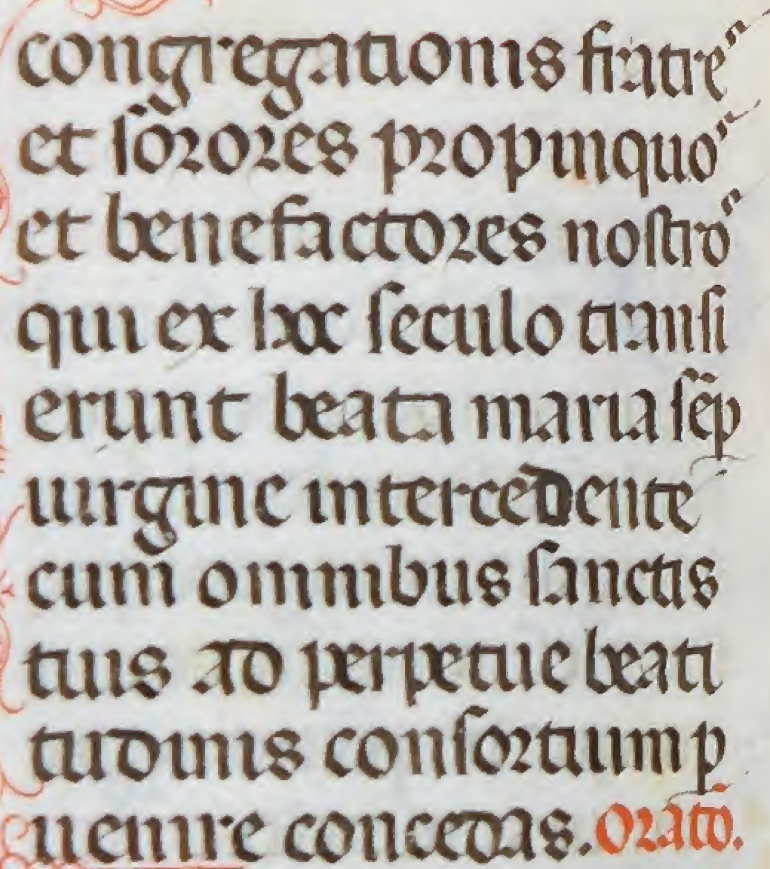 congregationis fratreˢ
et sorores propinquoˢ
et benefactores nostroˢ
qui ex hoc seculo transi
erunt beata maria sēp
uirgine intercedente
cum omnibus sanctis
tuis ad perpetue beati
tudinis consortium p
uenire concedas. Oratō.